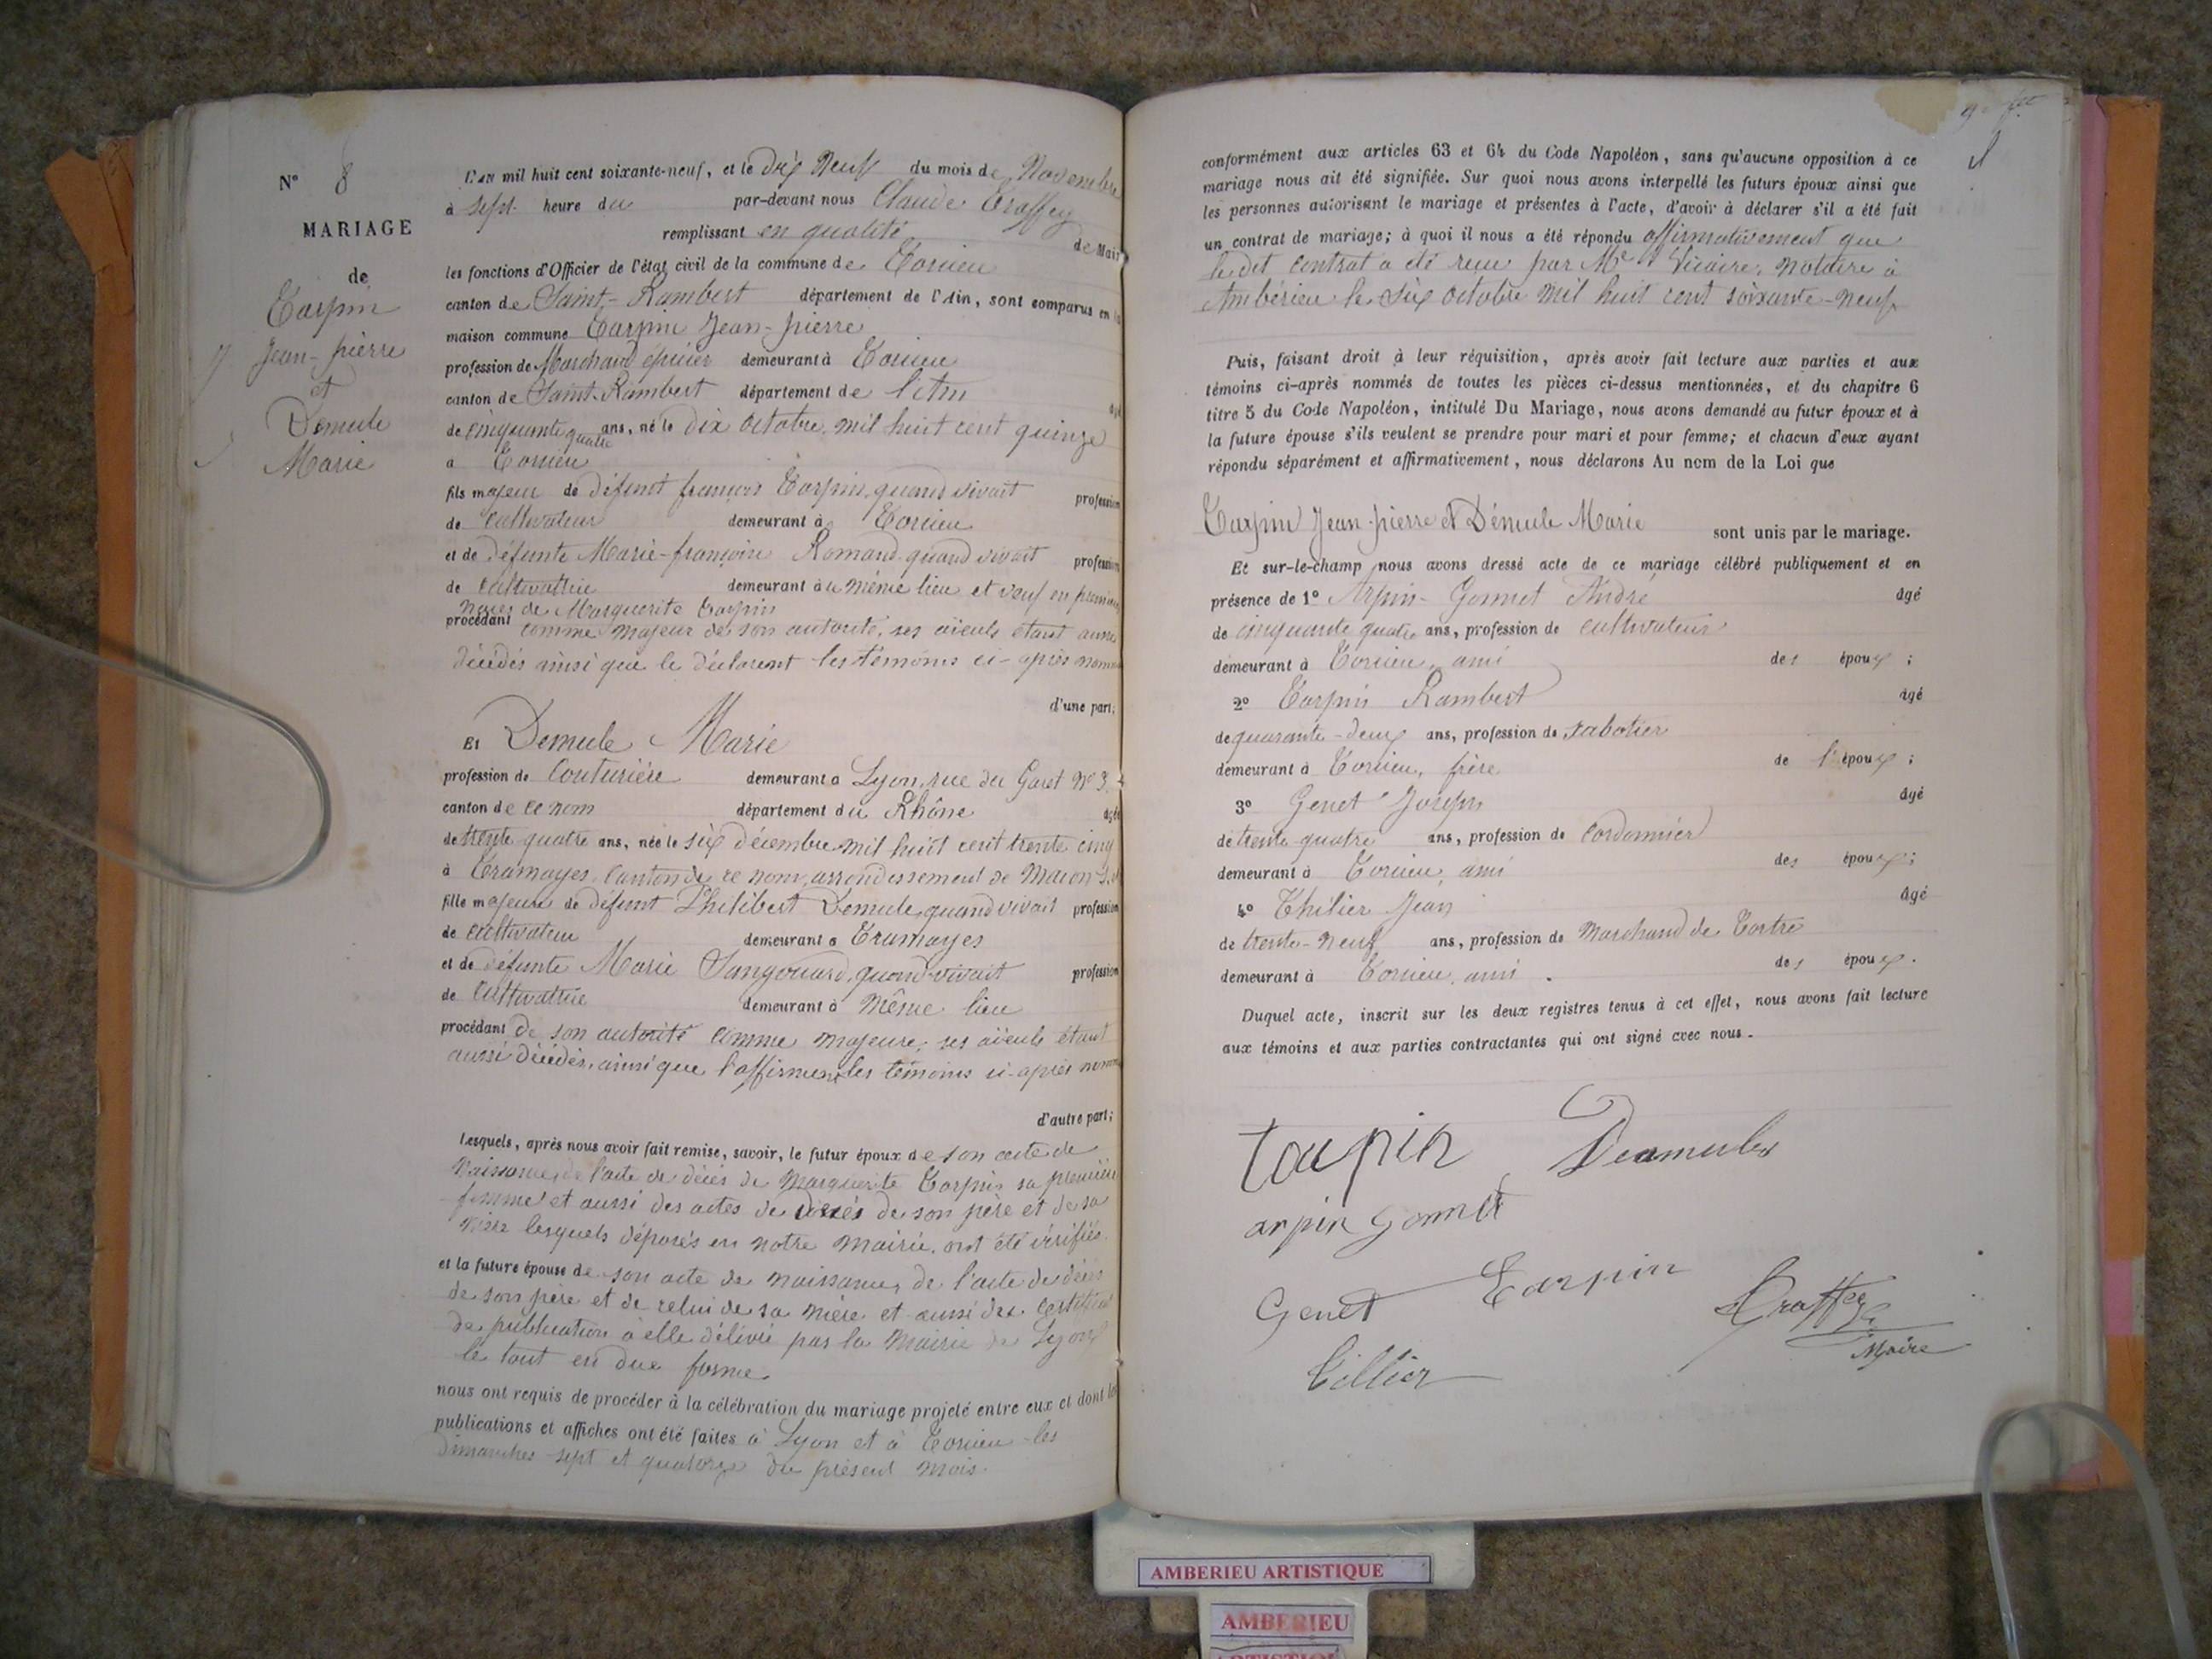 N° 8
MARIAGE
de
Tarpin
Jean-pierre
et
Demule
Marie
L'an mil huit cent soixante-neuf, et le dix Neuf du mois de Novembre
à sept heure du par-devant nous Claude Traffey
remplissant en qualité de Maire
les fonctions d'Officier de l'état civil de la commune de Torcieu
canton de Saint-Rambert département de l'Ain, sont comparus en la
maison commune Tarpin Jean-pierre
profession de Marchand épicier demeurant à Torcieu
canton de Saint-Rambert département de l'Ain
âgé
de cinquante quatre ans, né le dix octobre mil huit cent quinze
a Torcieu
fils majeur de défunt françois Tarpin, quand vivait profession
de cultivateur demeurant à Torcieu
et de défunte Marie-françoise Romand quand vivait profession
de cultivatrice demeurant à le même lieu et veuf en premières
noces de Marguerite Tarpin
procédant comme majeur de son autorité, ses aïeuls étant aussi
décédés ainsi que le déclarent les témoins ci-après nommés
d'une part;
Et Demule Marie
profession de Couturière demeurant a Lyon, rue du Garet N° 3
canton de ce nom département du Rhône âgée
de trente quatre ans, née le six décembre mil huit cent trente cinq
à Tramayes, Canton de ce nom, arrondissement de Macon S.L
fille majeure de défunt Philibert Demule, quand vivait profession
de cultivateur demeurant a Tramayes
et de défunte Marie Sangouard, quand vivait profession
de cultivatrice demeurant à même lieu
procédant de son autorité comme majeure, ses aïeuls étant
aussi décédés, ainsi que l'affirment les témoins ci-après nommés
d'autre part;
Lesquels, après nous avoir fait remise, savoir, le futur époux de son acte de
Naissance, de l'acte de décès de Marguerite Tarpin sa première
femme et aussi des actes de décès de son père et de sa
mère lesquels déposés en notre Mairie, ont été vérifiés
et la future épouse de son acte de naissance, de l'acte de décès
de son père et de celui de sa mère et aussi des certificat
de publication à elle délivré par la Mairie de Lyon
le tout en due forme
nous ont requis de procéder à la célébration du mariage projeté entre eux et dont les
publications et affiches ont été faites à Lyon et à Torcieu les
dimanches sept et quatorze du présent mois.
conformément aux articles 63 et 64 du Code Napoléon, sans qu'aucune opposition à ce
mariage nous ait été signifiée. Sur quoi nous avons interpellé les futurs époux ainsi que
les personnes autorisant le mariage et présentes à l'acte, d'avoir à déclarer s'il a été fait
un contrat de mariage; à quoi il nous a été répondu affirmativement que
le dit contrat a été reçu par Me Vicaire, notaire à
Ambérieu le six octobre mil huit cent soixante-neuf
Puis, faisant droit à leur réquisition, après avoir fait lecture aux parties et aux
témoins ci-après nommés de toutes les pièces ci-dessus mentionnées, et du chapitre 6
titre 5 du Code Napoléon, intitulé Du Mariage, nous avons demandé au futur époux et à
la future épouse s'ils veulent se prendre pour mari et pour femme; et chacun d'eux ayant
répondu séparément et affirmativement, nous déclarons Au nom de la Loi que
Tarpin Jean-pierre et Démule Marie sont unis par le mariage.
Et sur-le-champ nous avons dressé acte de ce mariage célébré publiquement et en
présence de 1° Arpin-Gonnet André âgé
de cinquante quatre ans, profession de cultivateur
demeurant à Torcieu, ami des époux;
2° Tarpin Rambert âgé
de quarante-deux ans, profession de sabotier
demeurant à Torcieu, frère de l'époux;
3° Genet Joseph âgé
de trente quatre ans, profession de cordonnier
demeurant à Torcieu, ami des époux;
4° Thilier Jean âgé
de trente-neuf ans, profession de Marchand de Tartre
demeurant à Torcieu, ami. des époux.
Duquel acte, inscrit sur les deux registres tenus à cet effet, nous avons fait lecture
aux témoins et aux parties contractantes qui ont signé avec nous.
tarpin Deamules
arpin gonnet
Genet Tarpin Traffey
Maire
Tillier
AMBERIEU ARTISTIQUE
AMBERIEU
ARTISTIQUE